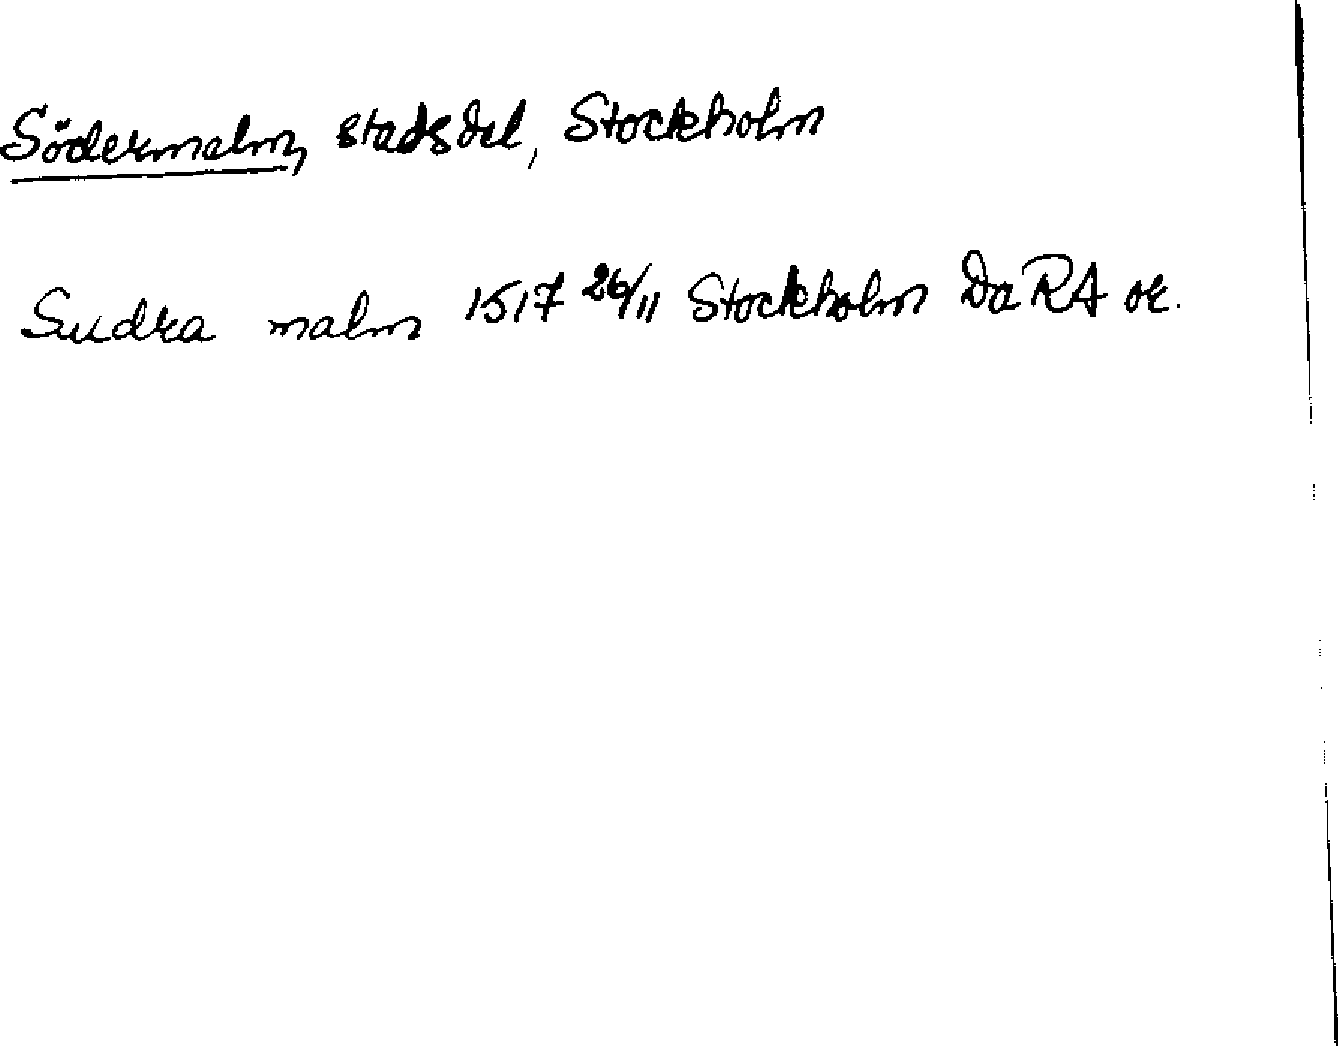 Södermalm, stadsdel, Stockholm
Sudra malm 1517 26/11 Stockholm DaRA or.